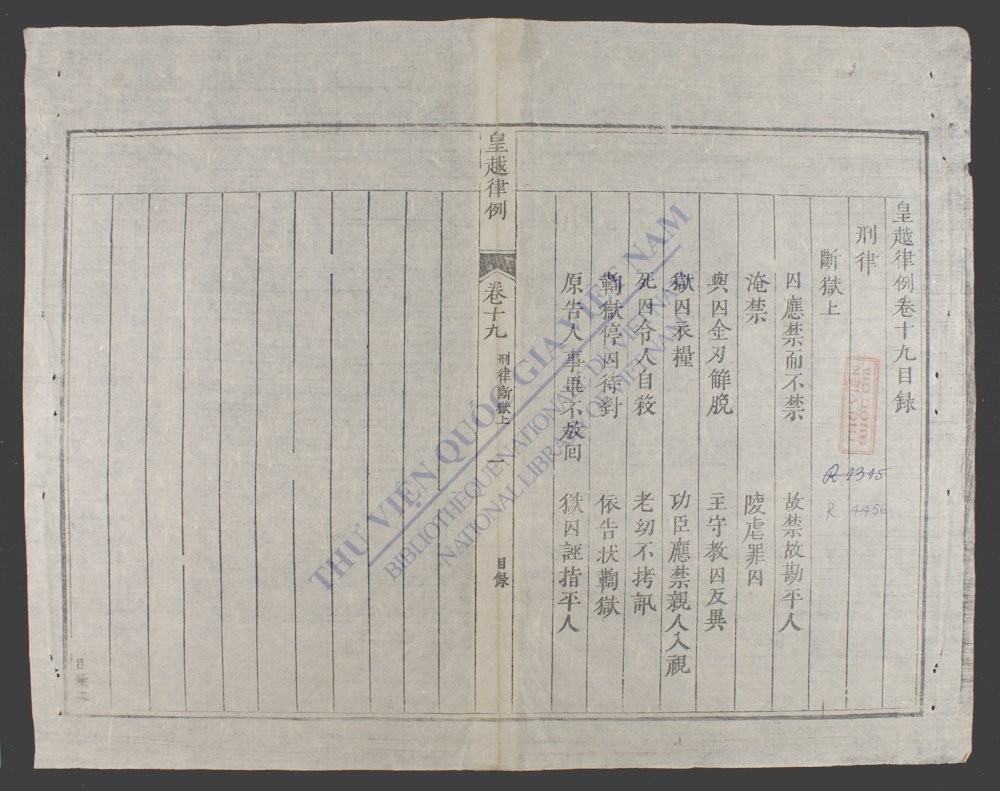 皇越律例卷十九目録
刑律
斷獄上
囚應禁而不禁 故禁故勘平人
淹禁 陵虐罪囚
與囚金刃解脫 主守教囚反異
獄囚衣糧 功臣應禁親人入視
死囚令人自殺 老幼不拷訊
鞫獄停囚待對 依告状鞫獄
原告人事畢不放回 獄囚誣指平人
皇越律例
卷十九
刑律斷獄上
一
目錄
THƯ VIỆN QUỐC GIA VIỆT NAM
BIBLIOTHÈQUE NATIONALE DU VIETNAM
NATIONAL LIBRARY OF VIETNAM
THƯ VIỆN
QUỐC GIA
R 4315
R. 4456